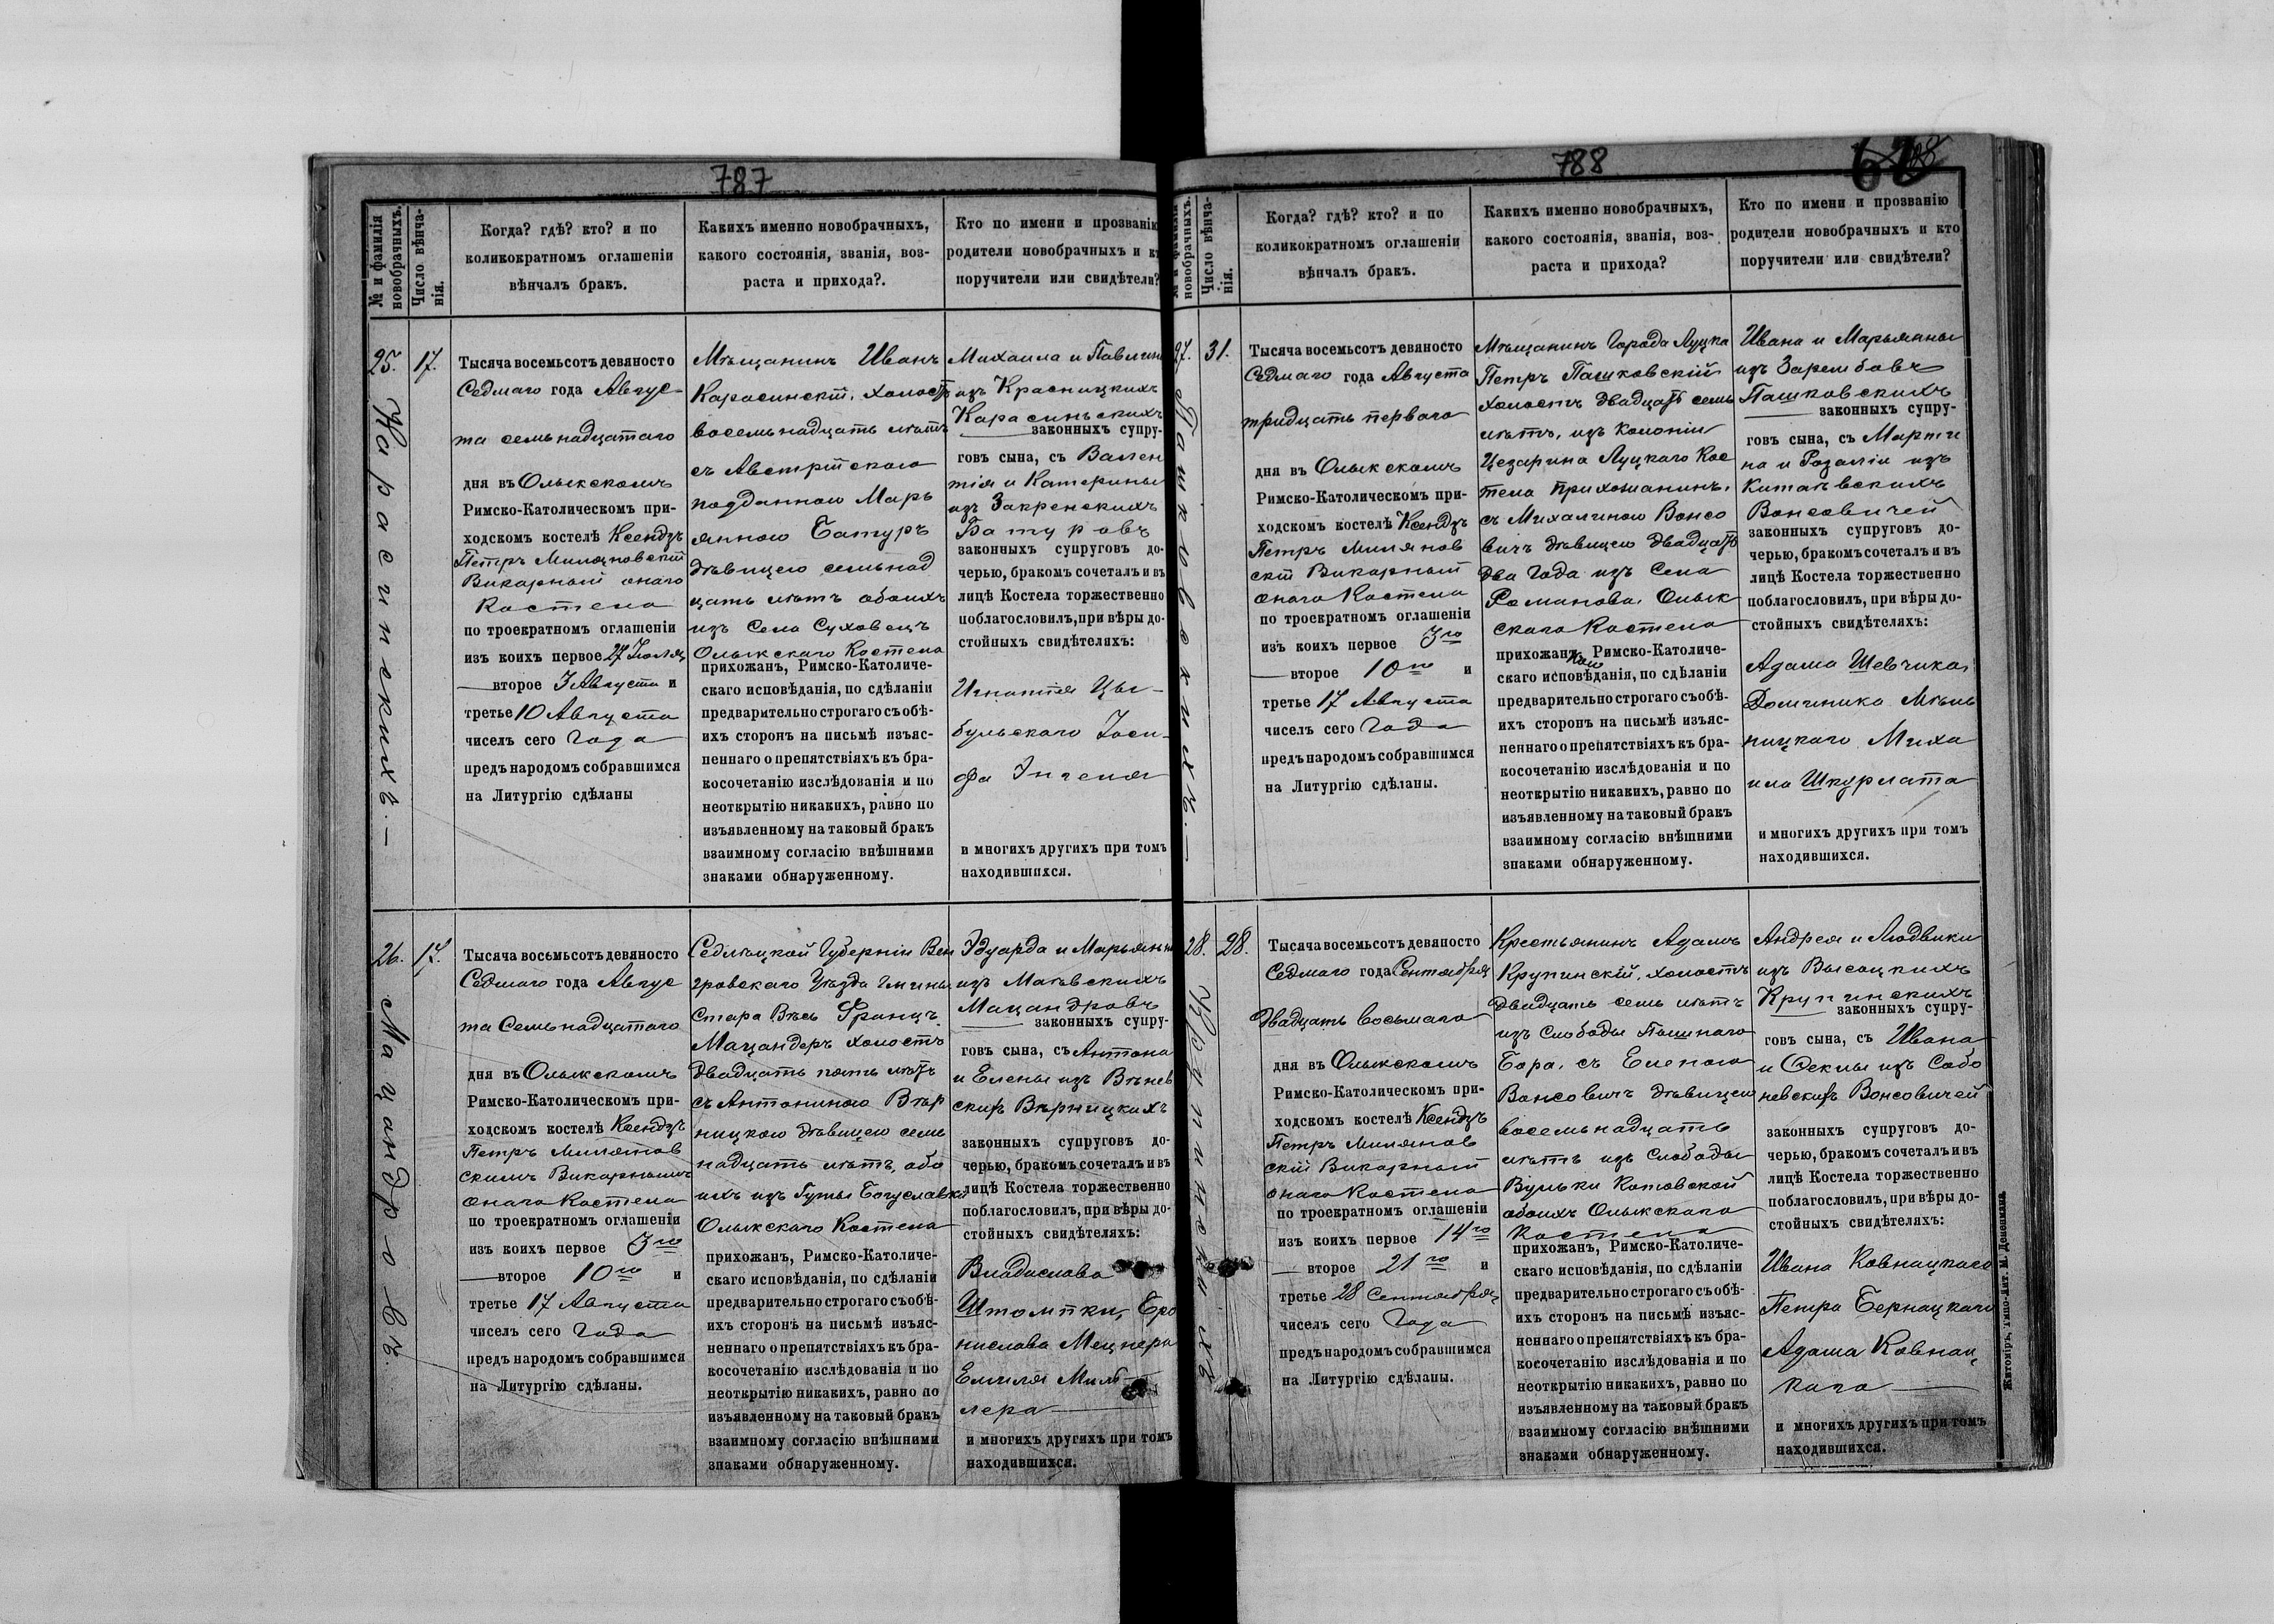 787
№ и фамилія новобрачныхъ.
Число вѣнча-
нія.
Когда? гдѣ? кто? и по
коликократномъ оглашеніи
вѣнчалъ бракъ.
Какихъ именно новобрачныхъ,
какого состоянія, званія, воз-
раста и прихода?.
Кто по имени и прозванію
родители новобрачныхъ и кт
поручители или свидѣтели?
25.
Карасинскихъ.—
17.
Тысяча восемьсотъ девяносто
Седмаго года Авгус-
та семьнадцатаго
дня въ Олыкскомъ
Римско-Католическомъ при-
ходскомъ костелѣ Ксендзъ
Петръ Миляновскій
Викарный онаго
Костела
по троекратномъ оглашеніи
изъ коихъ первое 27 Іюля
второе 3 Августа и
третье 10 Августа
чиселъ сего Года
предъ народомъ собравшимся
на Литургію сдѣланы
Мѣщанинъ Иванъ
Карасинскій, холостъ
восемьнадцать лѣтъ
съ Австрійскою
подданною Марь
янною Батуръ
дѣвицею семьнад
цать лѣтъ обоихъ
изъ Села Суховецъ
Олыкскаго Костела
прихожанъ, Римско-Католиче-
скаго исповѣданія, по сдѣланіи
предварительно строгаго съ обѣ-
ихъ сторонъ на письмѣ изъяс-
неннаго о препятствіяхъ къ бра-
косочетанію изслѣдованія и по
неоткрытію никакихъ, равно по
изъявленному на таковый бракъ
взаимному согласію внѣшними
знаками обнаруженному.
Михаила и Павлин
изъ Красницкихъ
Карасинскихъ
законныхъ супру-
говъ сына, съ Вален
тія и Катерины
изъ Закренскихъ
Батуровъ
законныхъ супруговъ до-
черью, бракомъ сочеталъ и въ
лицѣ Костела торжественно
поблагословилъ, при вѣры до-
стойныхъ свидѣтеляхъ:
Игнатія Цы-
бульскаго Іоси-
фа Інгеля
и многихъ другихъ при томъ
находившихся.
26.
Мацандровъ.
17.
Тысяча восьмьсотъ девяносто
Седмаго года Авгус
та Семьнадцатаго
дня въ Олыкскомъ
Римско-Католическомъ при-
ходскомъ костелѣ Ксендзъ
Петръ Милянов
скимъ Викарнымъ
онаго Костела
по троекратномъ оглашеніи
изъ коихъ первое 3го
второе 10го и
третье 17 Августа
чиселъ сего Года
предъ народомъ собравшимся
на Литургію сдѣланы.
Седлецкой Губерніи Вен
гровскаго Уѣзда Гмины
Стара Вѣсь Францъ
Мацандеръ холостъ
двадцать пять лѣтъ
съ Антониною Вѣр
ницкою дѣвицею семь
надцать лѣтъ, обо
ихъ изъ Гуты Богуславки
Олыкскаго Костела
прихожанъ, Римско-Католиче-
скаго исповѣданія, по сдѣланіи
предварительно строгаго съ обѣ-
ихъ сторонъ на письмѣ изъяс-
неннаго о препятствіяхъ къ бра-
косочетанію изслѣдованія и по
неоткрытію никакихъ, равно по
изъявленному на таковый бракъ
взаимному согласію внѣшними
знаками обнаруженному.
Эдуарда и Марьянн
изъ Маевскихъ
Мацандровъ
законныхъ супру-
говъ сына, съ Антона
и Елены изъ Вѣнев
скихъ Вѣрницкихъ
законныхъ супруговъ до-
черью, бракомъ сочеталъ и въ
лицѣ Костела торжественно
поблагословилъ, при вѣры до-
стойныхъ свидѣтеляхъ:
Владислава
Штомпки, Бро
нислава Мецнера
Емиля Мил-
лера
и многихъ другихъ при томъ
находившихся.
788
№ и фамилія новобрачныхъ.
Число вѣнча-
нія.
Когда? гдѣ? кто? и по
коликократномъ оглашеніи
вѣнчалъ бракъ.
Какихъ именно новобрачныхъ,
какого состоянія, званія, воз-
раста и прихода?
Кто по имени и прозванію
родители новобрачныхъ и кто
поручители или свидѣтели?
27.
Пашковскихъ.—
31.
Тысяча восемьсотъ девяносто
Седмаго года Августа
тридцать перваго
дня въ Олыкскомъ
Римско-Католическомъ при-
ходскомъ костелѣ Ксендзъ
Петръ Милянов
скій Викарный
онаго Костела
по троекратномъ оглашеніи
изъ коихъ первое 3го
второе 10го и
третье 17 Августа
чиселъ сего Года
предъ народомъ собравшимся
на Литургію сдѣланы.
Мѣщанинъ Города Луцка
Петръ Пашковскій
холостъ двадцать семь
лѣтъ, изъ колоніи
Цезарина Луцкаго Кос
тела прихожанинъ,
съ Михалиною Вонсо
вичъ дѣвицею двадцать
два года изъ Села
Романова, Олык
скаго Костела
прихожанкою Римско-Католиче-
скаго исповѣданія, по сдѣланіи
предварительно строгаго съ обѣ-
ихъ сторонъ на письмѣ изъяс-
неннаго о препятствіяхъ къ бра-
косочетанію изслѣдованія и по
неоткрытію никакихъ, равно по
изъявленному на таковый бракъ
взаимному согласію внѣшними
знаками обнаруженному.
Ивана и Марьянны
изъ Зарембовъ
Пашковскихъ
законныхъ супру-
говъ сына, съ Марти
на и Розаліи изъ
Китаевскихъ
Вонсовичей
законныхъ супруговъ до-
черью, бракомъ сочеталъ и въ
лицѣ Костела торжественно
поблагословилъ, при вѣры до-
стойныхъ свидѣтеляхъ:
Адама Шевчика,
Доминика Мѣль
ницкаго Миха
ила Шкурлата
и многихъ другихъ при томъ
находившихся.
28.
Крупинскихъ
28.
Тысяча восемьсотъ девяносто
Седмаго года Сентября
двадцать восьмаго
дня въ Олыкскомъ
Римско-Католическомъ при-
ходскомъ костелѣ Ксендзъ
Петръ Милянов
скій Викарный
онаго Костела
по троекратномъ оглашеніи
изъ коихъ первое 14го
второе 21го и
третье 28 Сентября
чиселъ сего Года
предъ народомъ собравшимся
на Литургію сдѣланы.
Крестьянинъ Адамъ
Крупинскій, холостъ
двадцать семь лѣтъ
изъ Слободы Пышнаго
Бора, съ Еленою
Вонсовичъ дѣвицею
восемьнадцать
лѣтъ изъ Слободы
Вульки Котовской
обоихъ Олыкскаго
Костела
прихожанъ, Римско-Католиче-
скаго исповѣданія, по сдѣланіи
предварительно строгаго съ обѣ-
ихъ сторонъ на письмѣ изъяс-
неннаго о препятствіяхъ къ бра-
косочетанію изслѣдованія и по
неоткрытію никакихъ, равно по
изъявленному на таковый бракъ
взаимному согласію внѣшними
знаками обнаруженному.
Андрея и Людвики
изъ Высоцкихъ
Крупинскихъ
законныхъ супру-
говъ сына, съ Ивана
и Феклы изъ Собо
невскихъ Вонсовичей
законныхъ супруговъ до-
черью, бракомъ сочеталъ и въ
лицѣ Костела торжественно
поблагословилъ, при вѣры до-
стойныхъ свидѣтеляхъ:
Ивана Ковнацкаго
Петра Бернацкаго
Адама Ковнац
каго
и многихъ другихъ при томъ
находившихся.
Житоміръ, Типо-Лит. М. Дененмана.